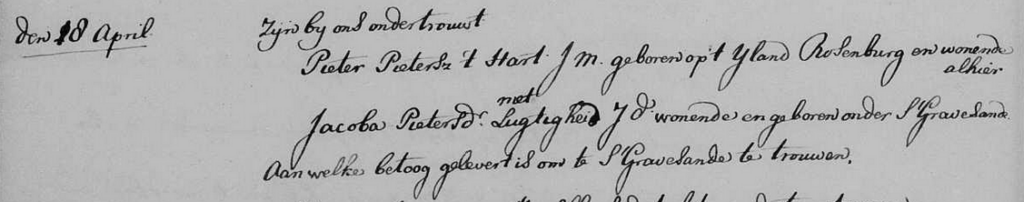 den 18 April Zijn by ons ondertrouwt
Pieter Pietersz 't Hart J m. geboren op 't Yland Rosenburg en wonende
alhier
met
Jacoba Pietersdr. Lugtigheid J d. wonende en geboren onder S'Gravesande.
Aan welke betoog gelevert is om te S'Gravesande te trouwen.